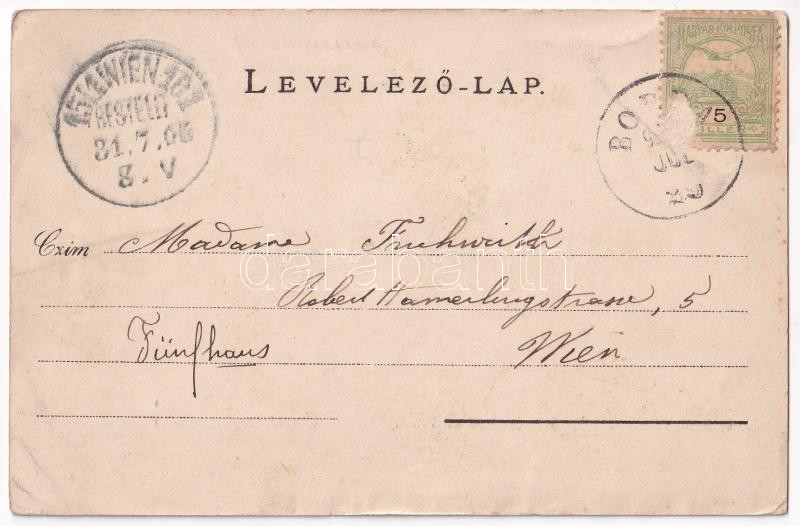 LEVELEZŐ-LAP.
15/1 WIEN 101
BESTELLT
31.7.06
8.V
MAGYAR KIR. POSTA
5
FILLÉR
BO
JUL
Czim Madame Fruhwirth
Robert Hamerlingstrasse, 5
Fünfhaus Wien
darabanth